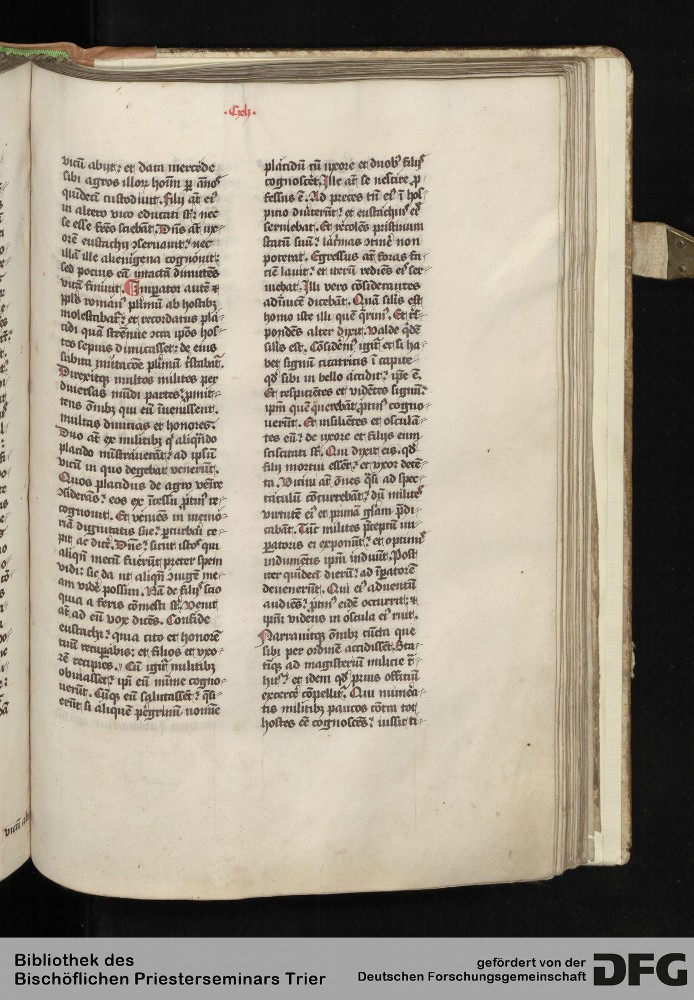 ·Cxlj·
vicū abijt: et data mercede
sibi agros illoꝝ hoīm ꝑ ānos
quīdecī custodiuit. Filij aūt eiꝰ
in altero vico educati sūt: nec
se esse frēs sciebāt. Dn̄s aūt vx-
orē eustachij ɔseruauit: nec
illā ille alienigena cognouit:
sed pocius eā intactā dimittēs
vitā finiuit. Imperator autē ⁊
ipl̄s romanꝰ plimū ab hostibꝫ
molestabatᷣ: et recordatus pla-
cidi quā strēnue ɔtra ip̄os hos-
tes sepius dimicasset: de eius
subita mutacōe plimū tristabatᷣ.
Direxitqꝫ multos milites per
diuersas mūdi partes: pmit-
tens om̄ibꝫ qui eū īuenissent:
multas diuicias et honores.
Duo aūt ex militibꝫ qͥ aliqn̄do
placido ministrauerāt: ad ip̄sū
vicū in quo degebat venerūt.
Quos placidus de agro venire
ɔsiderās: eos ex īcessu ꝓtinꝰ re-
cognouit. Et veniēs in memo-
riā dignitatis sue: ꝑturbari ce-
pit ac dicē. Dn̄e: sicut istos qui
aliqn̄ mecū fuerūt preter spem
vidi: sic da ut aliqn̄ ɔiugē me-
am vidē possim. Nā de filijs scio
quia a feris cōmesti sūt. Venit
aūt ad eū vox dicēs. Confide
eustachi: quia cito et honorē
tuū recuꝑabis: et filios et vxo-
rē recipies. Cū igitᷣ militibꝫ
obuiasset: ip̄i eū mīme cogno-
uerūt. Cūqꝫ eū salutassēt: q̄si-
erūt si aliquē pegrinū nomīe
placidū cū vxore et duobꝰ filijs
cognoscēt. Ille aūt se nescire ꝓ
fessus ē. Ad preces tn̄ eiꝰ ī hos-
picio diuterūt: et eustachius eis
seruiebat. Et recolēs pristinum
statū suū: lacrimas ɔtinē non
poterat. Egressus aūt foras fa-
ciē lauit: et iterū rediēs eis ser-
uiebat. Illi vero cōsiderantes
adīuicē dicebāt. Quā silīs est
homo iste illi quē qͣrimꝰ. Et rn̄-
pondēs alter dixit. Valde qͥdē
silīs est. Cōsidemꝰ igitᷣ et si ha-
bet signū cicatricis ī capite
qd̓ sibi in bello accidit: ip̄e ē.
Et respicientes et vidētes signū:
ip̄m quē querebāt ꝓtinꝰ cogno-
uerūt. Et insiliētes et osculā-
tes eū: de vxore et filijs eum
sciscitati sūt. Qui dixit eis. qd̓
filij mortui essēt: et vxor detē-
ta. Vicini aūt om̄es q̄si ad spec-
taculū cōcurrebāt: dū milites
virtutē eiꝰ et primā glam p̄di-
cabāt. Tūc milites p̄ceptū im-
ꝑatoris ei exponūt: et optimis
indumētis ip̄m induūt. Post
iter quīdecī dierū: ad īꝑatorē
deuenerūt. Qui eiꝰ aduentū
audiēs: ꝓtinꝰ eidē occurrit: ⁊
ip̄m vidēns in oscula eiꝰ ruit.
Narrauitqꝫ om̄ibꝫ cūcta que
sibi per ordinē accidissēt. Sta-
timqꝫ ad magisteriū milicie tͣ-
hitᷣ: et idem qd̓ prius officiū
excercē cōpellitᷣ. Qui numera-
tis militibꝫ paucos cōtra tot
hostes eē cognoscēs: iussit ti-
vicū ab
Bibliothek des
Bischöflichen Priesterseminars Trier
gefördert von der
Deutschen Forschungsgemeinschaft
DFG